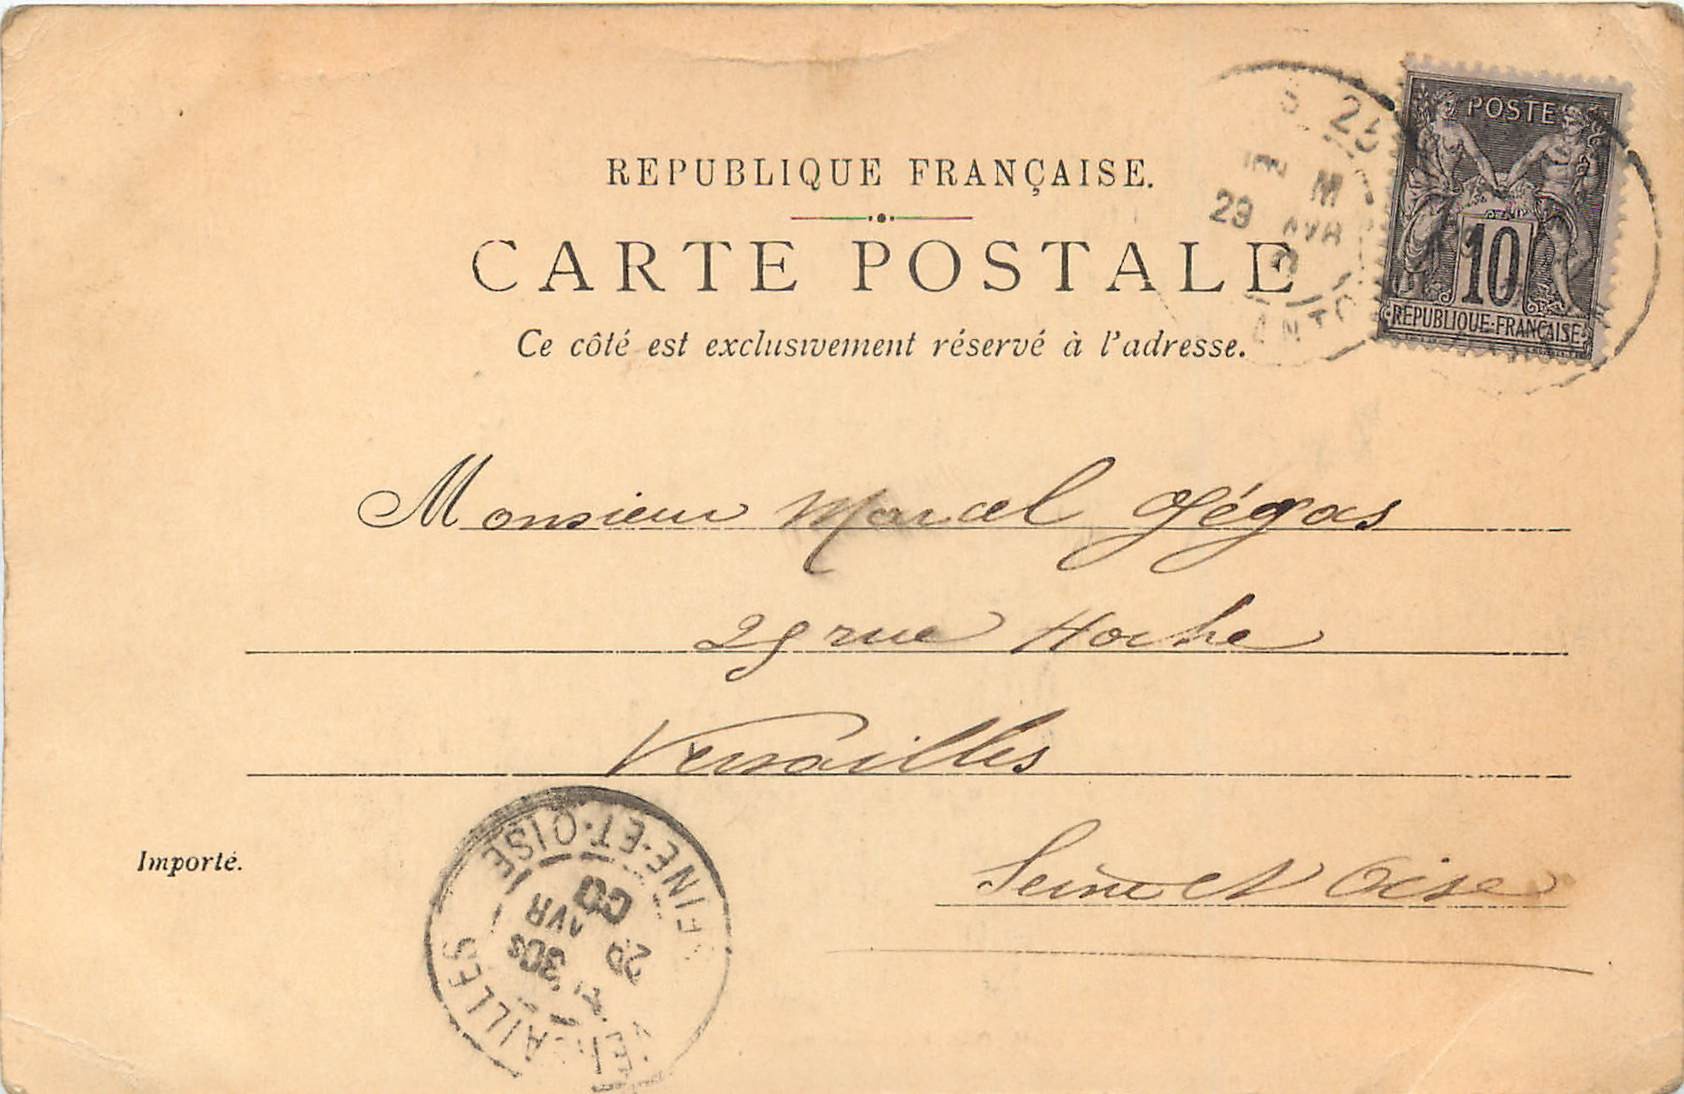 REPUBLIQUE FRANÇAISE.
CARTE POSTALE
Ce côté est exclusivement réservé à l'adresse.
POSTE
10
REPUBLIQUE FRANÇAISE
25
M
29 AVR
Monsieur Marcel Gégas
29 rue Hoche
Versailles
Seine et Oise
Importé.
VERSAILLES
SEINE-ET-OISE
30S
29 AVR
00